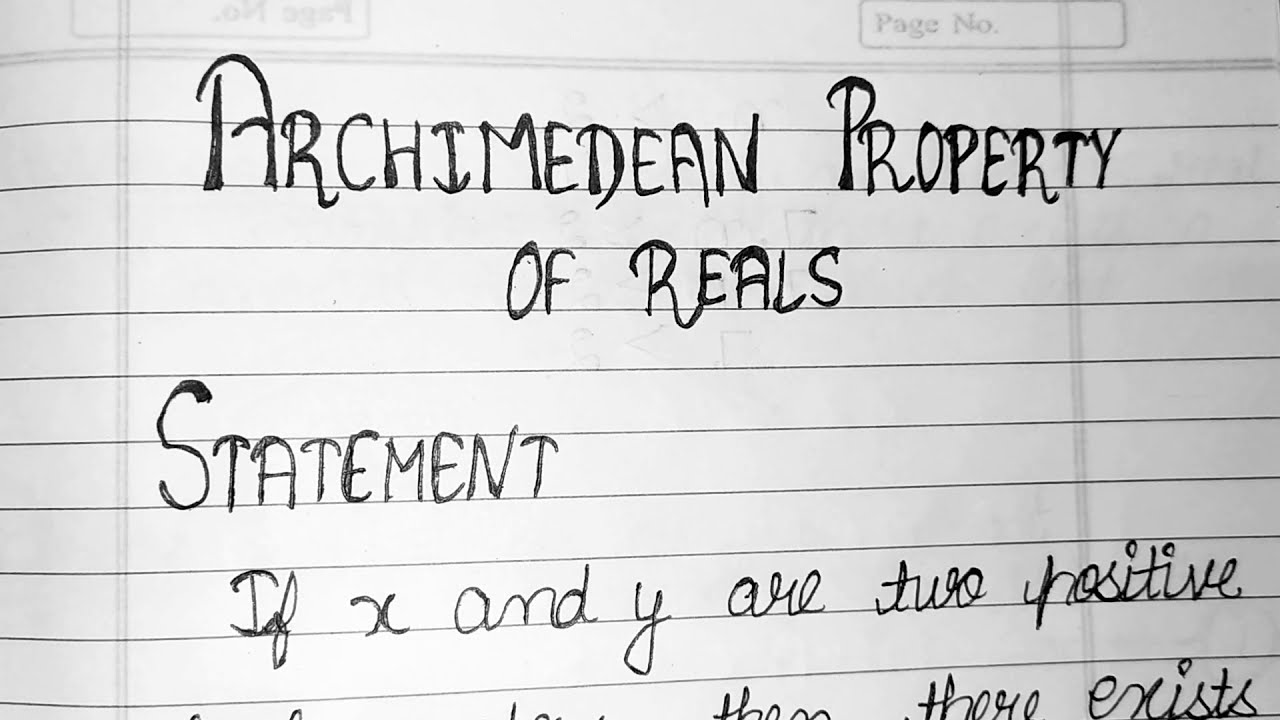 Page No.
Page No.
ARCHIMEDEAN PROPERTY
OF REALS
STATEMENT
If x and y are two positive
then there exists